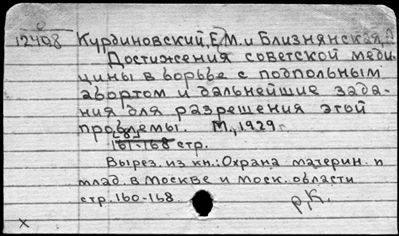 12408 Курдиновский, Е.М. и Близнянская,
Достижения советской меди-
цины в борьбе с подпольным
абортом и дальнейшие зада-
ния для разрешения этой
проблемы. М., 1929 г.
161-168 стр.
Вырез. из кн.: Охрана материн. и
млад. в Москве и Моск. области
стр. 160-168.
р.К.
x